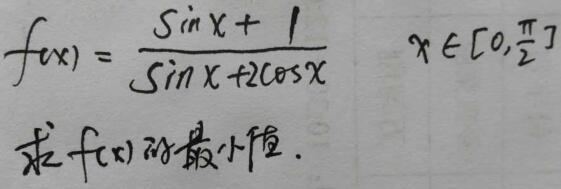 f(x) = (sin x + 1)/(sin x + 2cos x)  x ∈ [0, π/2]
求 f(x) 的最小值.